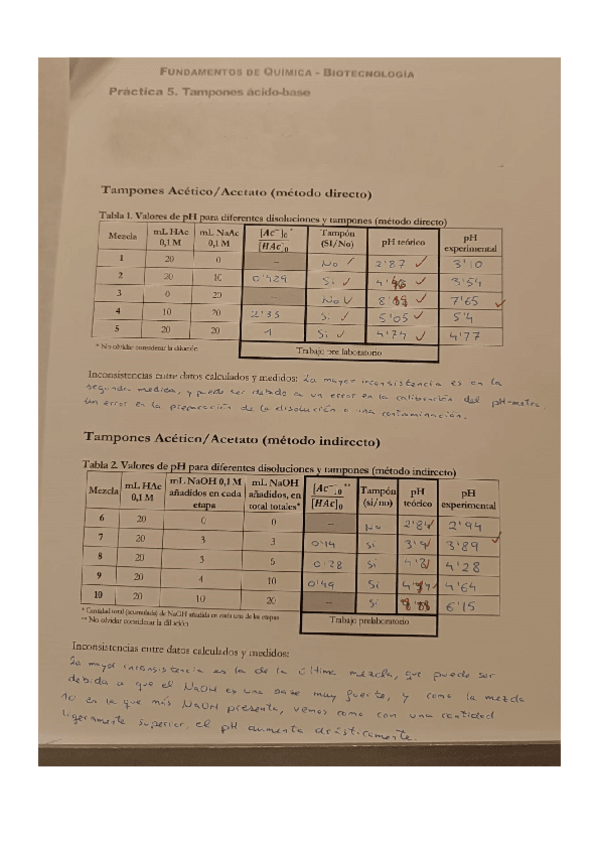 FUNDAMENTOS DE QUÍMICA - BIOTECNOLOGÍA
Práctica 5. Tampones ácido-base
Tampones Acético/Acetato (método directo)
Tabla 1. Valores de pH para diferentes disoluciones y tampones (método directo)
Mezcla | mL HAc 0,1 M | mL NaAc 0,1 M | [Ac⁻]₀* / [HAc]₀ | Tampón (SI/No) | pH teórico | pH experimental
1 | 20 | 0 | – | No ✓ | 2'87 ✓ | 3'10
2 | 20 | 10 | 0'429 | Si ✓ | ✓ | 3'54
3 | 0 | 20 | – | No ✓ | ✓ | 7'65 ✓
4 | 10 | 20 | 2'35 | Si ✓ | 5'05 ✓ | 5'4
5 | 20 | 20 | 1 | Si ✓ | 4'74 ✓ | 4'77
* No olvidar considerar la dilución
Trabajo pre laboratorio
Inconsistencias entre datos calculados y medidos: La mayor inconsistencia es en la
segunda medida, y puede ser debido a un error en la calibración del pH-metro
un error en la preparación de la disolución o una contaminación.
Tampones Acético/Acetato (método indirecto)
Tabla 2. Valores de pH para diferentes disoluciones y tampones (método indirecto)
Mezcla | mL HAc 0,1 M | mL NaOH 0,1 M añadidos en cada etapa | mL NaOH añadidos, en total totales* | [Ac⁻]₀** / [HAc]₀ | Tampón (si/no) | pH teórico | pH experimental
6 | 20 | 0 | 0 | – | No | ✓ | 2'94
7 | 20 | 3 | 3 | 0'14 | Si | ✓ | 3'89 ✓
8 | 20 | 3 | 5 | 0'28 | Si | ✓ | 4'28
9 | 20 | 4 | 10 | 0'49 | Si | ✓ | 4'64
10 | 20 | 10 | 20 | – | Si | 6'15
* Cantidad total (acumulada) de NaOH añadida en cada una de las etapas
** No olvidar considerar la dilución
Trabajo prelaboratorio
Inconsistencias entre datos calculados y medidos:
La mayor inconsistencia es la de la última mezcla, que puede ser
debida a que el NaOH es una base muy fuerte, y como la mezcla
10 en la que más NaOH presenta, vemos como con una cantidad
ligeramente superior, el pH aumenta drásticamente.